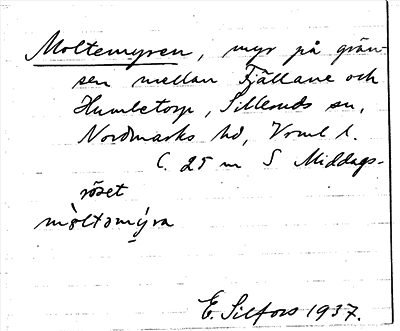 Moltemyren, myr på grän-
sen mellan Fjällane och
Humletorp, Silleruds sn,
Nordmarks hd, Vrml l.
C. 25 m S Middags-
röset
mòltəmýra
E. Silfors 1937.